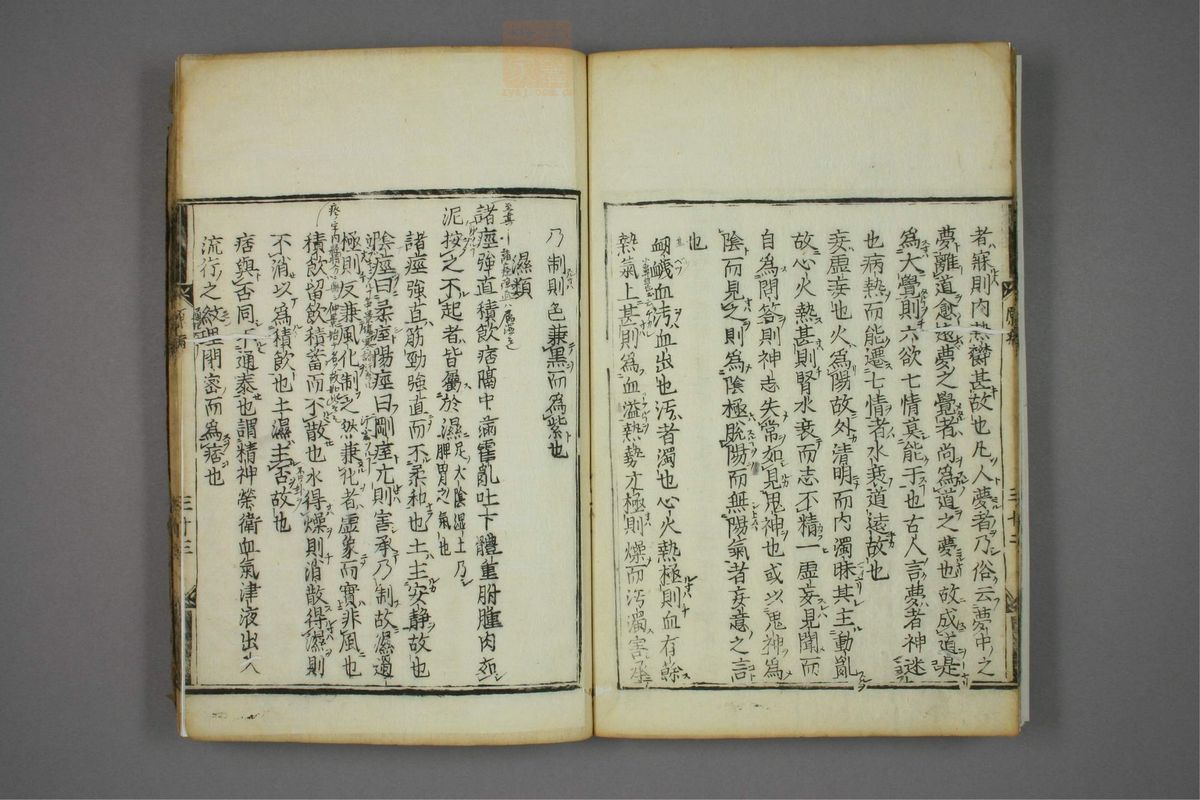 者寐則內熱欝甚故也凡人夢者乃俗云夢中之
夢離道愈遠夢之覺者尚為道之夢也故成道是
為大覺則六欲七情莫能于也古人言夢者神迷
也病熱而能遷七情者水衰道遠故也
妄虛妄也火為陽故外清明而內濁昧其主動亂
故心火熱甚則腎水衰而志不精一虛妄見聞而
自為問答則神志失常如見鬼神也或以鬼神為
陰而見之則為陰極脫陽而無陽氣者妄意之言
也
衂衊血汚血出也汚者濁也心火熱極則血有餘
熱氣上甚則為血溢熱勢亢極則燥而汚濁害承
乃制則色兼黑而為紫也
濕類
諸痙強直積飲痞隔中滿霍亂吐下體重胕腫肉如
泥按之不起者皆屬於濕足太陰濕土乃脾胃之氣也
諸痙強直筋勁強直而不柔和也土主安靜故也
陰痙曰柔痓陽痙曰剛痓亢則害承乃制故濕過
極則反兼風化制之然兼化者虛象而實非風也
積飲留飲積蓄而不散也水得燥則消散得濕則
不消以為積飲也土濕主否故也
痞與否同不通泰也謂精神榮衛血氣津液出入
流行之紋理閉密而為痞也
三十二
三十三